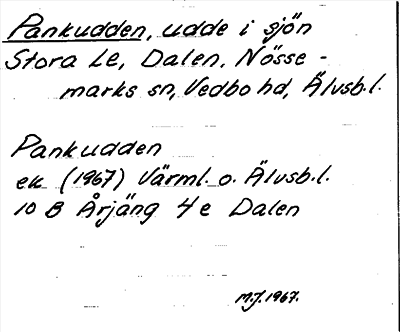 Pankudden, udde i sjön
Stora Le, Dalen, Nösse-
marks sn, Vedbo hd, Älvsb.l.
Pankudden
ek (1967) Värml. o. Älvsb.l.
10 B Årjäng 4e Dalen
M.J. 1967.